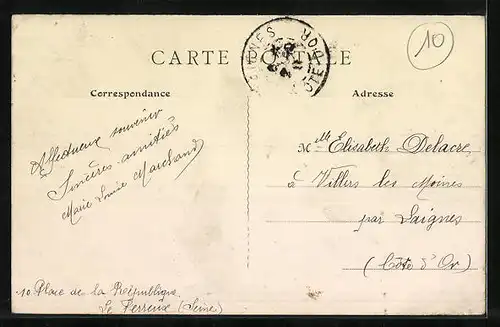 CARTE POSTALE
10
CÔTE D'OR
Correspondance
Adresse
Affectueux souvenir
Sincères amitiés
Marie Louise Marchand
10 Place de la République
Le Perreux (Seine)
Mlle Elisabeth Delacre
à Villers les Moines
par Laignes
(Côte d'Or)